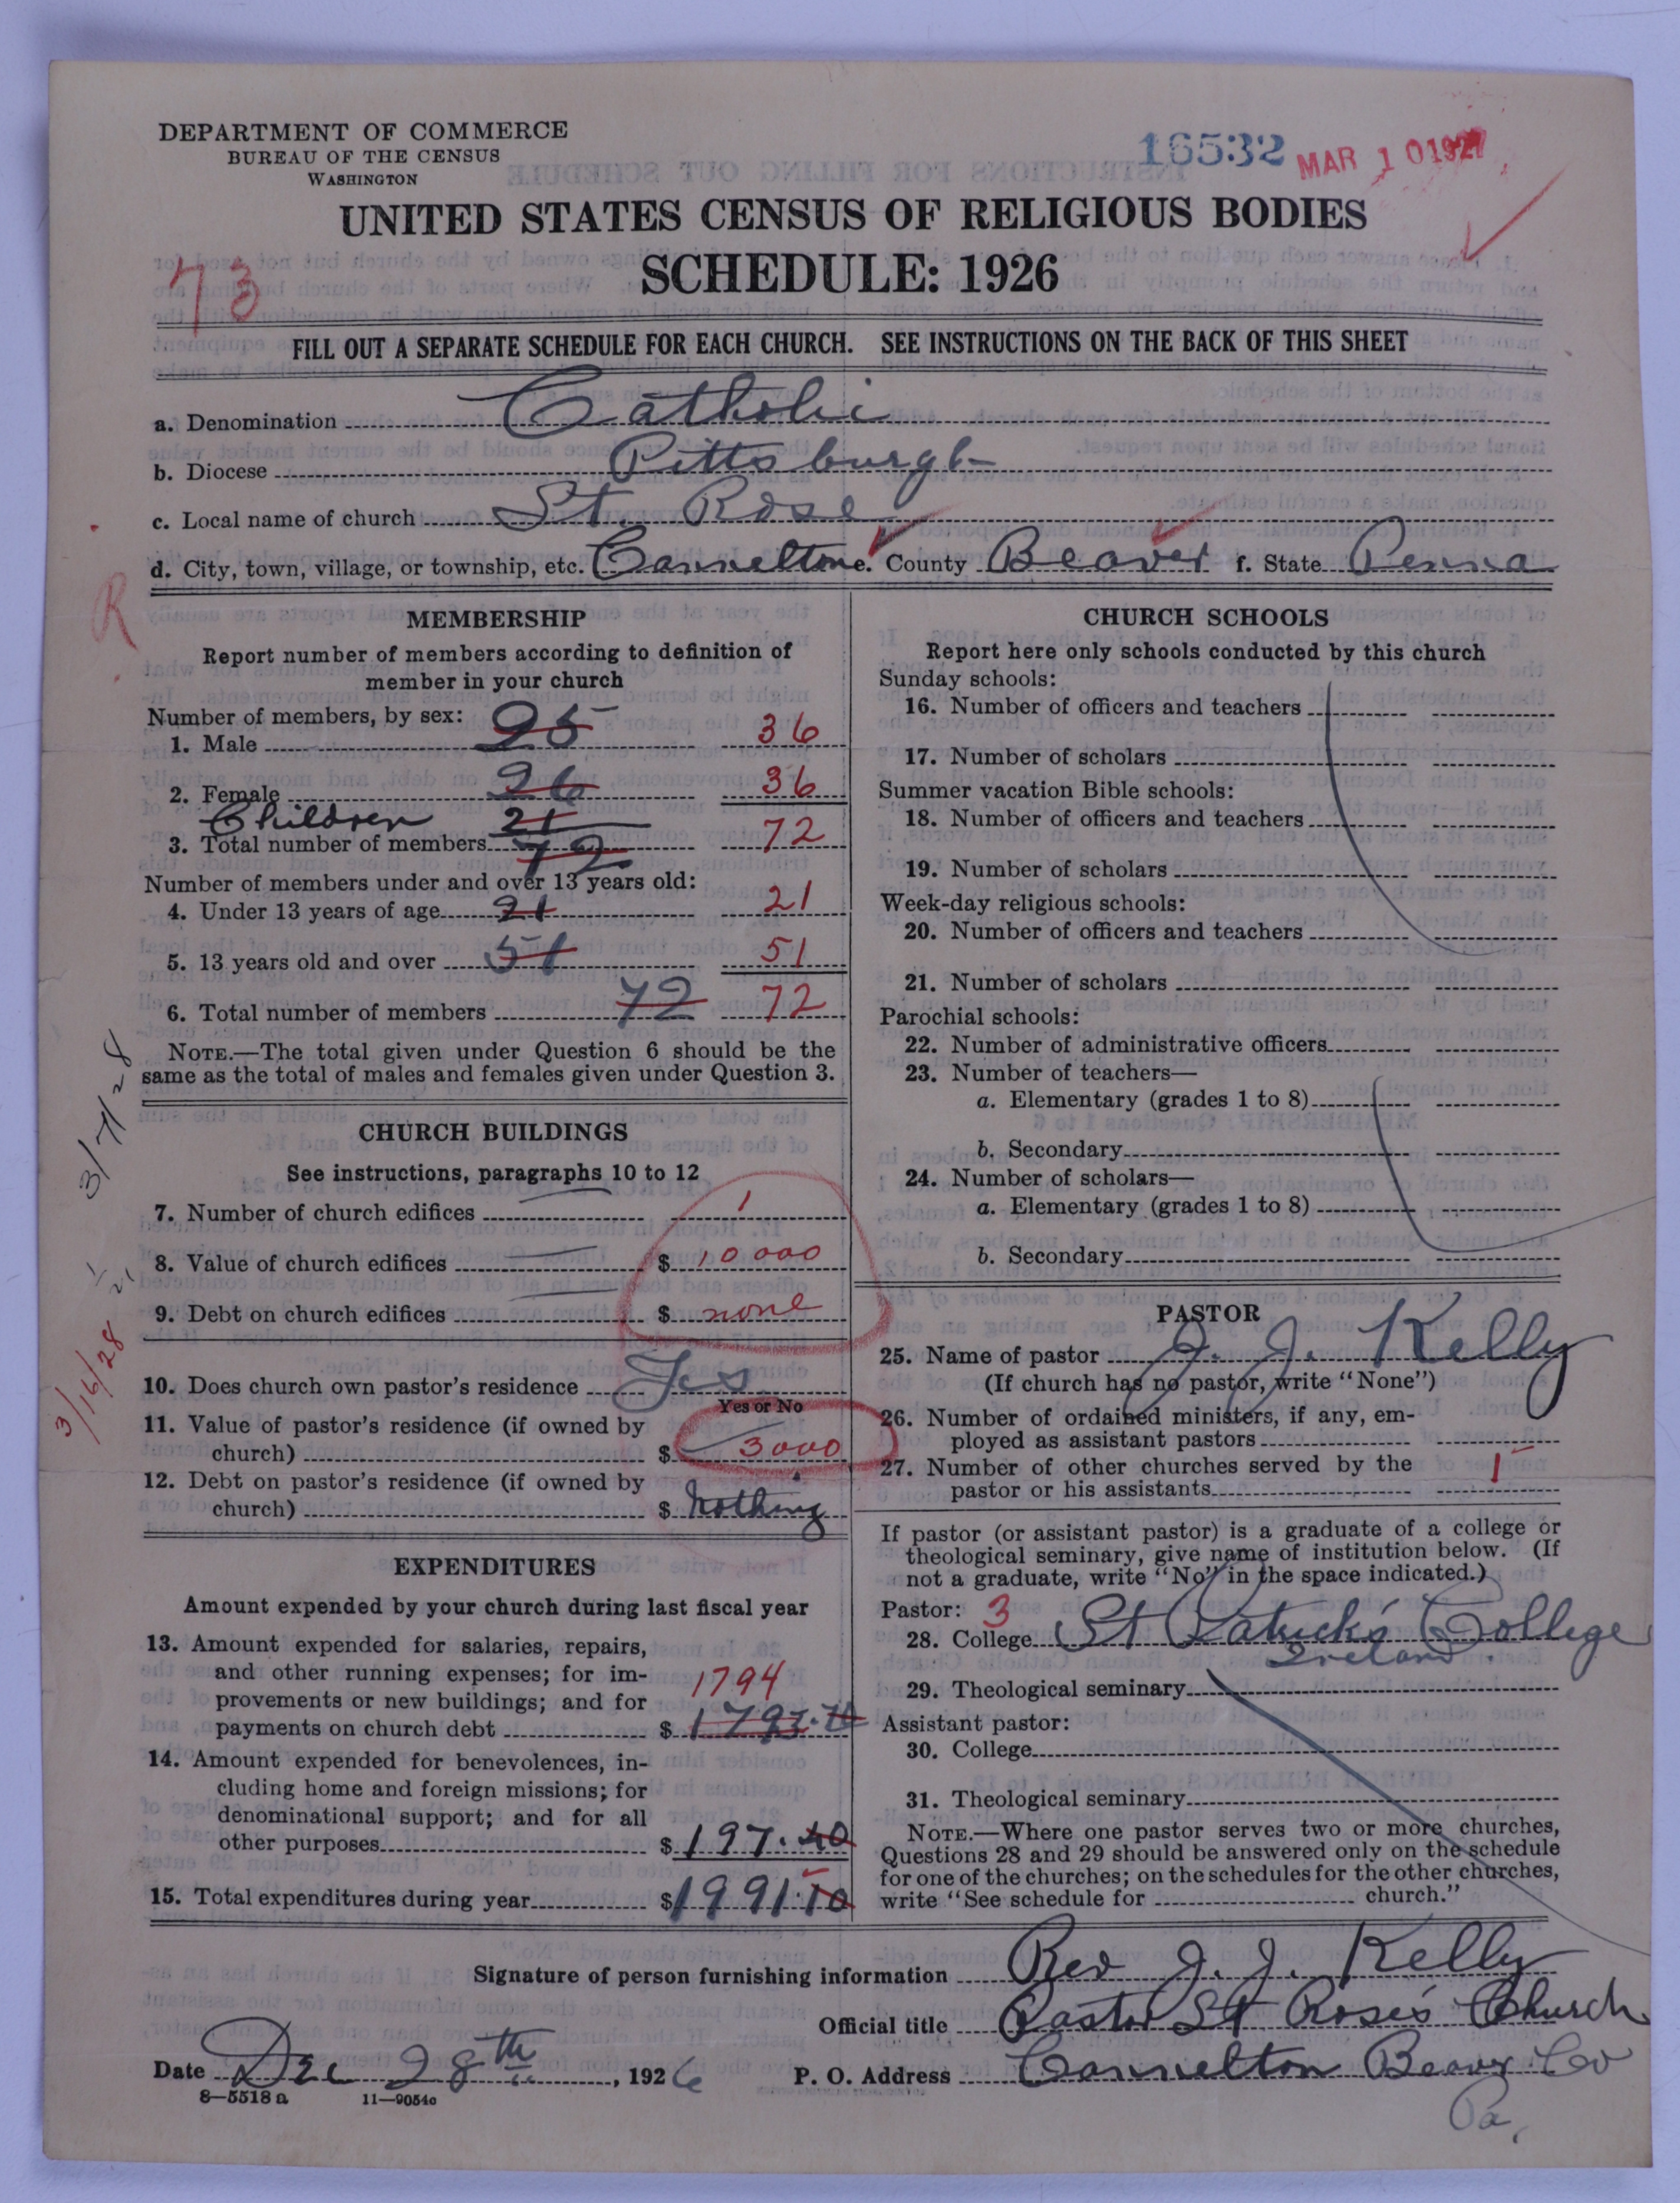 DEPARTMENT OF COMMERCE
BUREAU OF THE CENSUS
WASHINGTON
16532 MAR 10 1927
UNITED STATES CENSUS OF RELIGIOUS BODIES
SCHEDULE: 1926
73
FILL OUT A SEPARATE SCHEDULE FOR EACH CHURCH. SEE INSTRUCTIONS ON THE BACK OF THIS SHEET
a. Denomination Catholic
b. Diocese Pittsburgh
c. Local name of church St. Rose
d. City, town, village, or township, etc. Cannelton e. County Beaver f. State Penna
R
MEMBERSHIP
Report number of members according to definition of
member in your church
Number of members, by sex:
1. Male 25 36
2. Female 26 36
Children 21
3. Total number of members 72 72
Number of members under and over 13 years old:
4. Under 13 years of age 21 21
5. 13 years old and over 51 51
6. Total number of members 72 72
NOTE.—The total given under Question 6 should be the
same as the total of males and females given under Question 3.
3/7/28
CHURCH BUILDINGS
See instructions, paragraphs 10 to 12
7. Number of church edifices 1
8. Value of church edifices $ 10000
9. Debt on church edifices $ none
3/16/28
10. Does church own pastor's residence Yes
Yes or No
11. Value of pastor's residence (if owned by
church) $ 3000
12. Debt on pastor's residence (if owned by
church) $ Nothing
EXPENDITURES
Amount expended by your church during last fiscal year
13. Amount expended for salaries, repairs,
and other running expenses; for im-
provements or new buildings; and for 1794
payments on church debt $ 1793.70
14. Amount expended for benevolences, in-
cluding home and foreign missions; for
denominational support; and for all
other purposes $ 197.40
15. Total expenditures during year $ 1991.10
CHURCH SCHOOLS
Report here only schools conducted by this church
Sunday schools:
16. Number of officers and teachers
17. Number of scholars
Summer vacation Bible schools:
18. Number of officers and teachers
19. Number of scholars
Week-day religious schools:
20. Number of officers and teachers
21. Number of scholars
Parochial schools:
22. Number of administrative officers
23. Number of teachers—
a. Elementary (grades 1 to 8)
b. Secondary
24. Number of scholars—
a. Elementary (grades 1 to 8)
b. Secondary
PASTOR
25. Name of pastor J. J. Kelly
(If church has no pastor, write "None")
26. Number of ordained ministers, if any, em-
ployed as assistant pastors
27. Number of other churches served by the
pastor or his assistants 1
If pastor (or assistant pastor) is a graduate of a college or
theological seminary, give name of institution below. (If
not a graduate, write "No" in the space indicated.)
Pastor: 3
28. College St Patrick's College
Ireland.
29. Theological seminary
Assistant pastor:
30. College
31. Theological seminary
NOTE.—Where one pastor serves two or more churches,
Questions 28 and 29 should be answered only on the schedule
for one of the churches; on the schedules for the other churches,
write "See schedule for church."
Signature of person furnishing information Rev J. J. Kelly
Official title Pastor St Rose's Church
Date Dec 28th, 1926 P. O. Address Cannelton Beaver Co
Pa.
8—5518 a 11—9054c